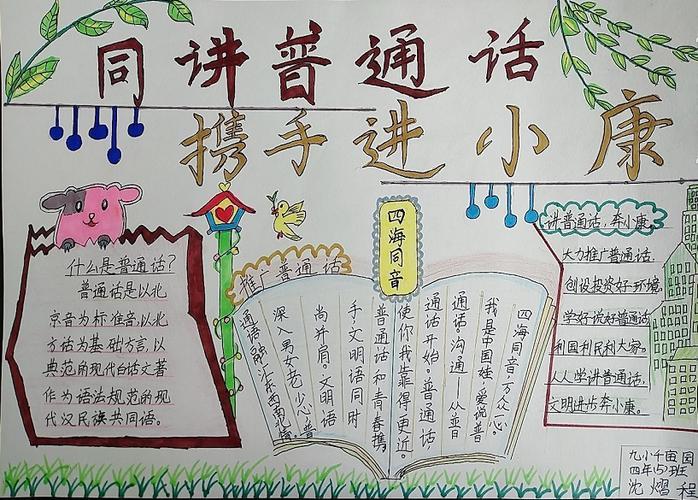 同讲普通话
携手进小康
什么是普通话?
普通话是以北
京音为标准音,以北
方话为基础方言,以
典范的现代白话文著
作为语法规范的现
代汉民族共同语。
推广普通话
四海同音
四海同音,万众一心。
我是中国娃,爱说普
通话。沟通——从普
通话开始。普通话
使你我靠得更近。
普通话和青春携
手,文明语同时
尚并肩。文明语
深入男女老少心,普
通语融汇东西南北
讲普通话,奔小康。
大力推广普通话.
创设投资好环境.
学好说好普通话
利国利民利大家。
人人学讲普通话.
文明进步奔小康。
九小千亩园
四年(5)班
沈熠程